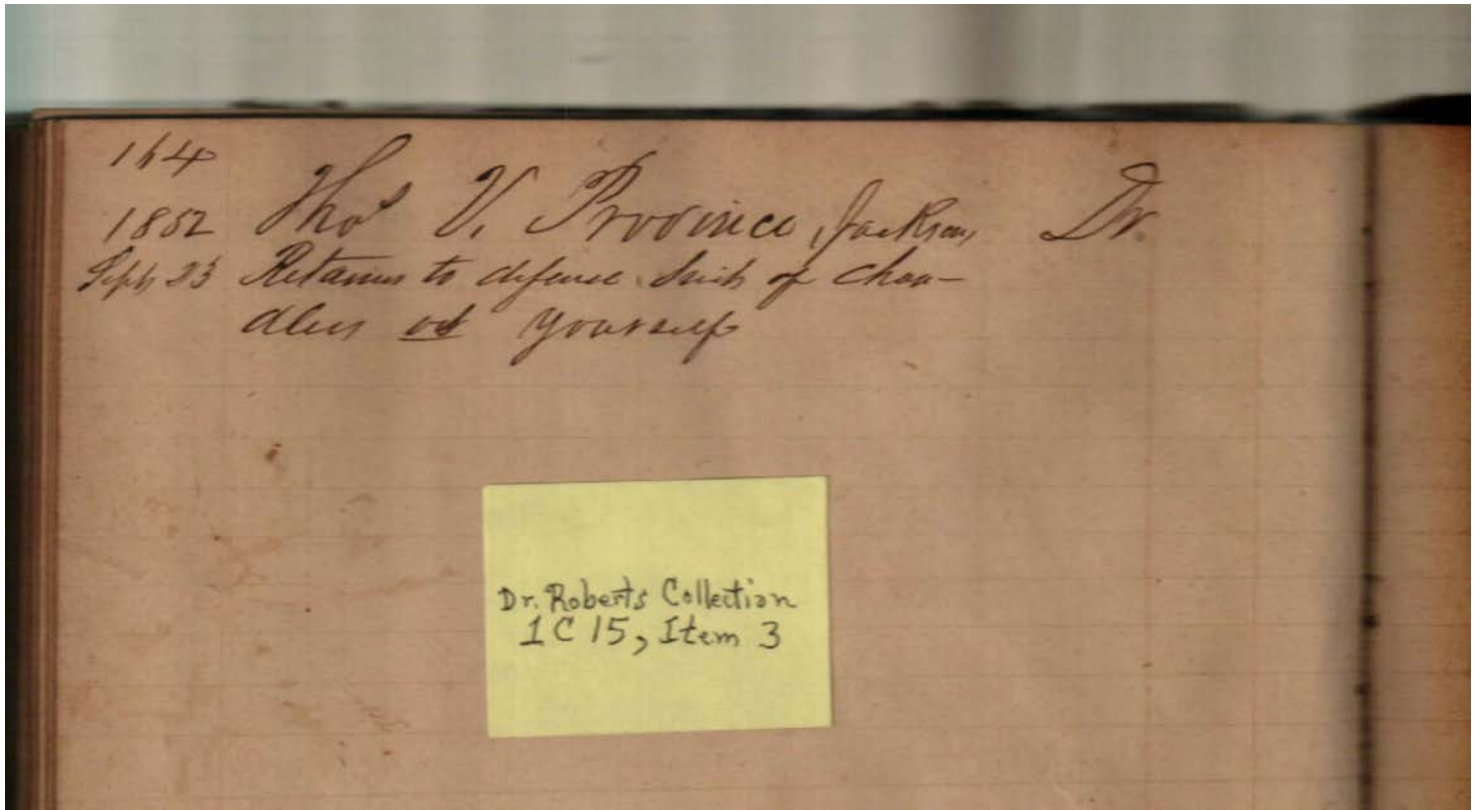 164
1852 Thos V. Province, Jackson, Dr.
Sept 23 Retainer to defence. Suit of Chan-
dler vs yourself
Dr. Roberts Collection
1 C 15, Item 3